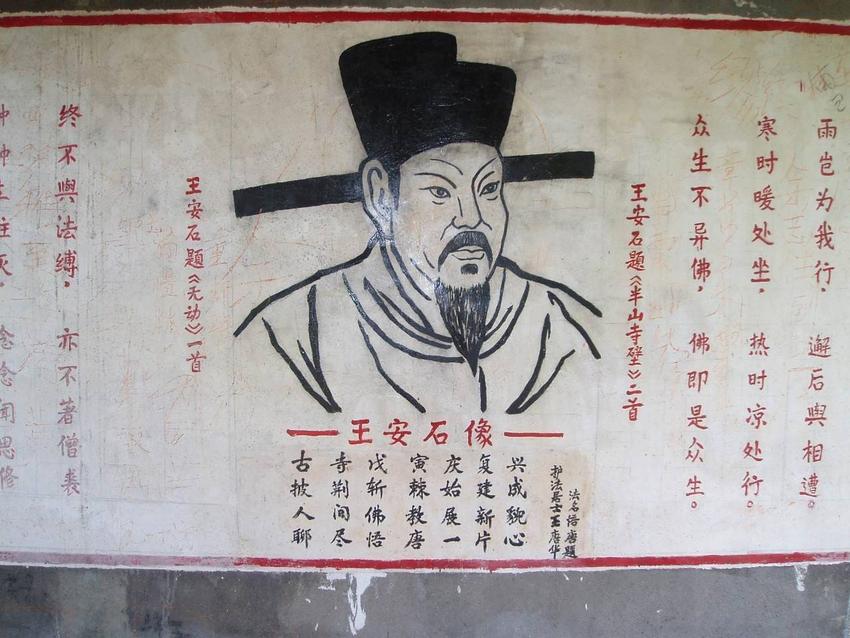 雨岂为我行，邂后與相遭。
寒时暖处坐，热时凉处行。
众生不异佛，佛即是众生。
王安石题《半山寺壁》二首
王安石像
古寺戊寅庆复兴
披荆斩棘始建成
人间佛教展新貌
聊尽悟唐一片心
法名悟唐题
护法居士王唐华
种种生住灭，念念闻思修
终不與法缚，亦不著僧裘
王安石题《无动》一首